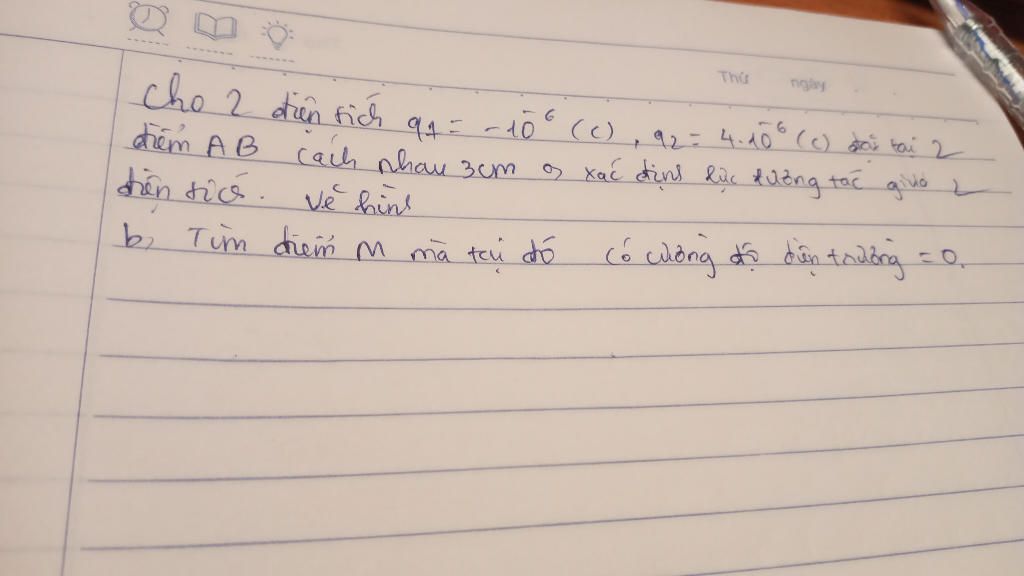 Thứ ngày
Cho 2 điện tích q1 = -10⁻⁶ (C), q2 = 4.10⁻⁶ (C) đặt tại 2
điểm AB cách nhau 3cm a, xác định lực tương tác giữa 2
điện tích. Vẽ hình
b, Tìm điểm M mà tại đó có cường độ điện trường = 0.